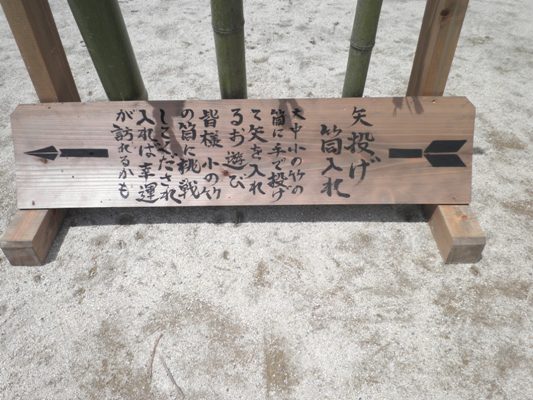 矢投げ
筒入れ
大中小の竹の
筒に手で投げ
て矢を入れ
るお遊び
皆様 小の竹
の筒に挑戦
してくだされ
入れば幸運
が訪れるかも